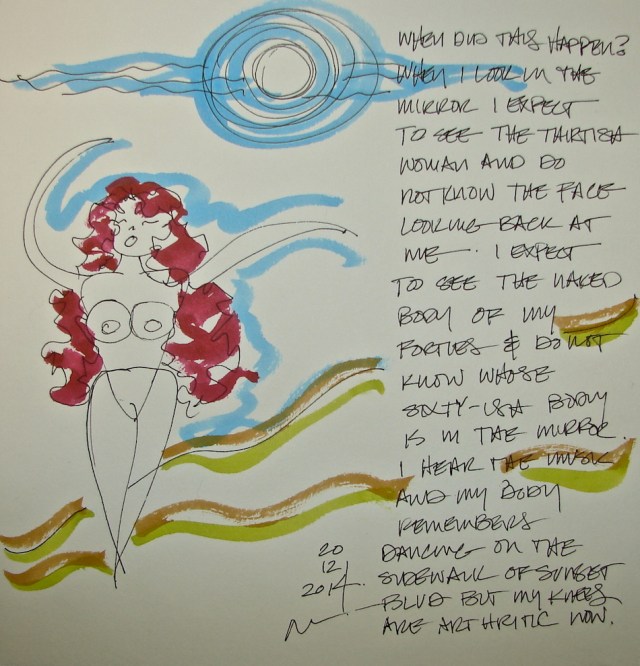 WHEN DID THIS HAPPEN?
WHEN I LOOK IN THE
MIRROR I EXPECT
TO SEE THE THIRTISH
WOMAN AND DO
NOT KNOW THE FACE
LOOKING BACK AT
ME. I EXPECT
TO SEE THE NAKED
BODY OF MY
FORTIES & DO NOT
KNOW WHOSE
SIXTY-ISH BODY
IS IN THE MIRROR.
I HEAR THE MUSIC
AND MY BODY
REMEMBERS
DANCING ON THE
SIDEWALK OF SUNSET
BLVD BUT MY KNEES
ARE ARTHRITIC NOW.
20
12
2014